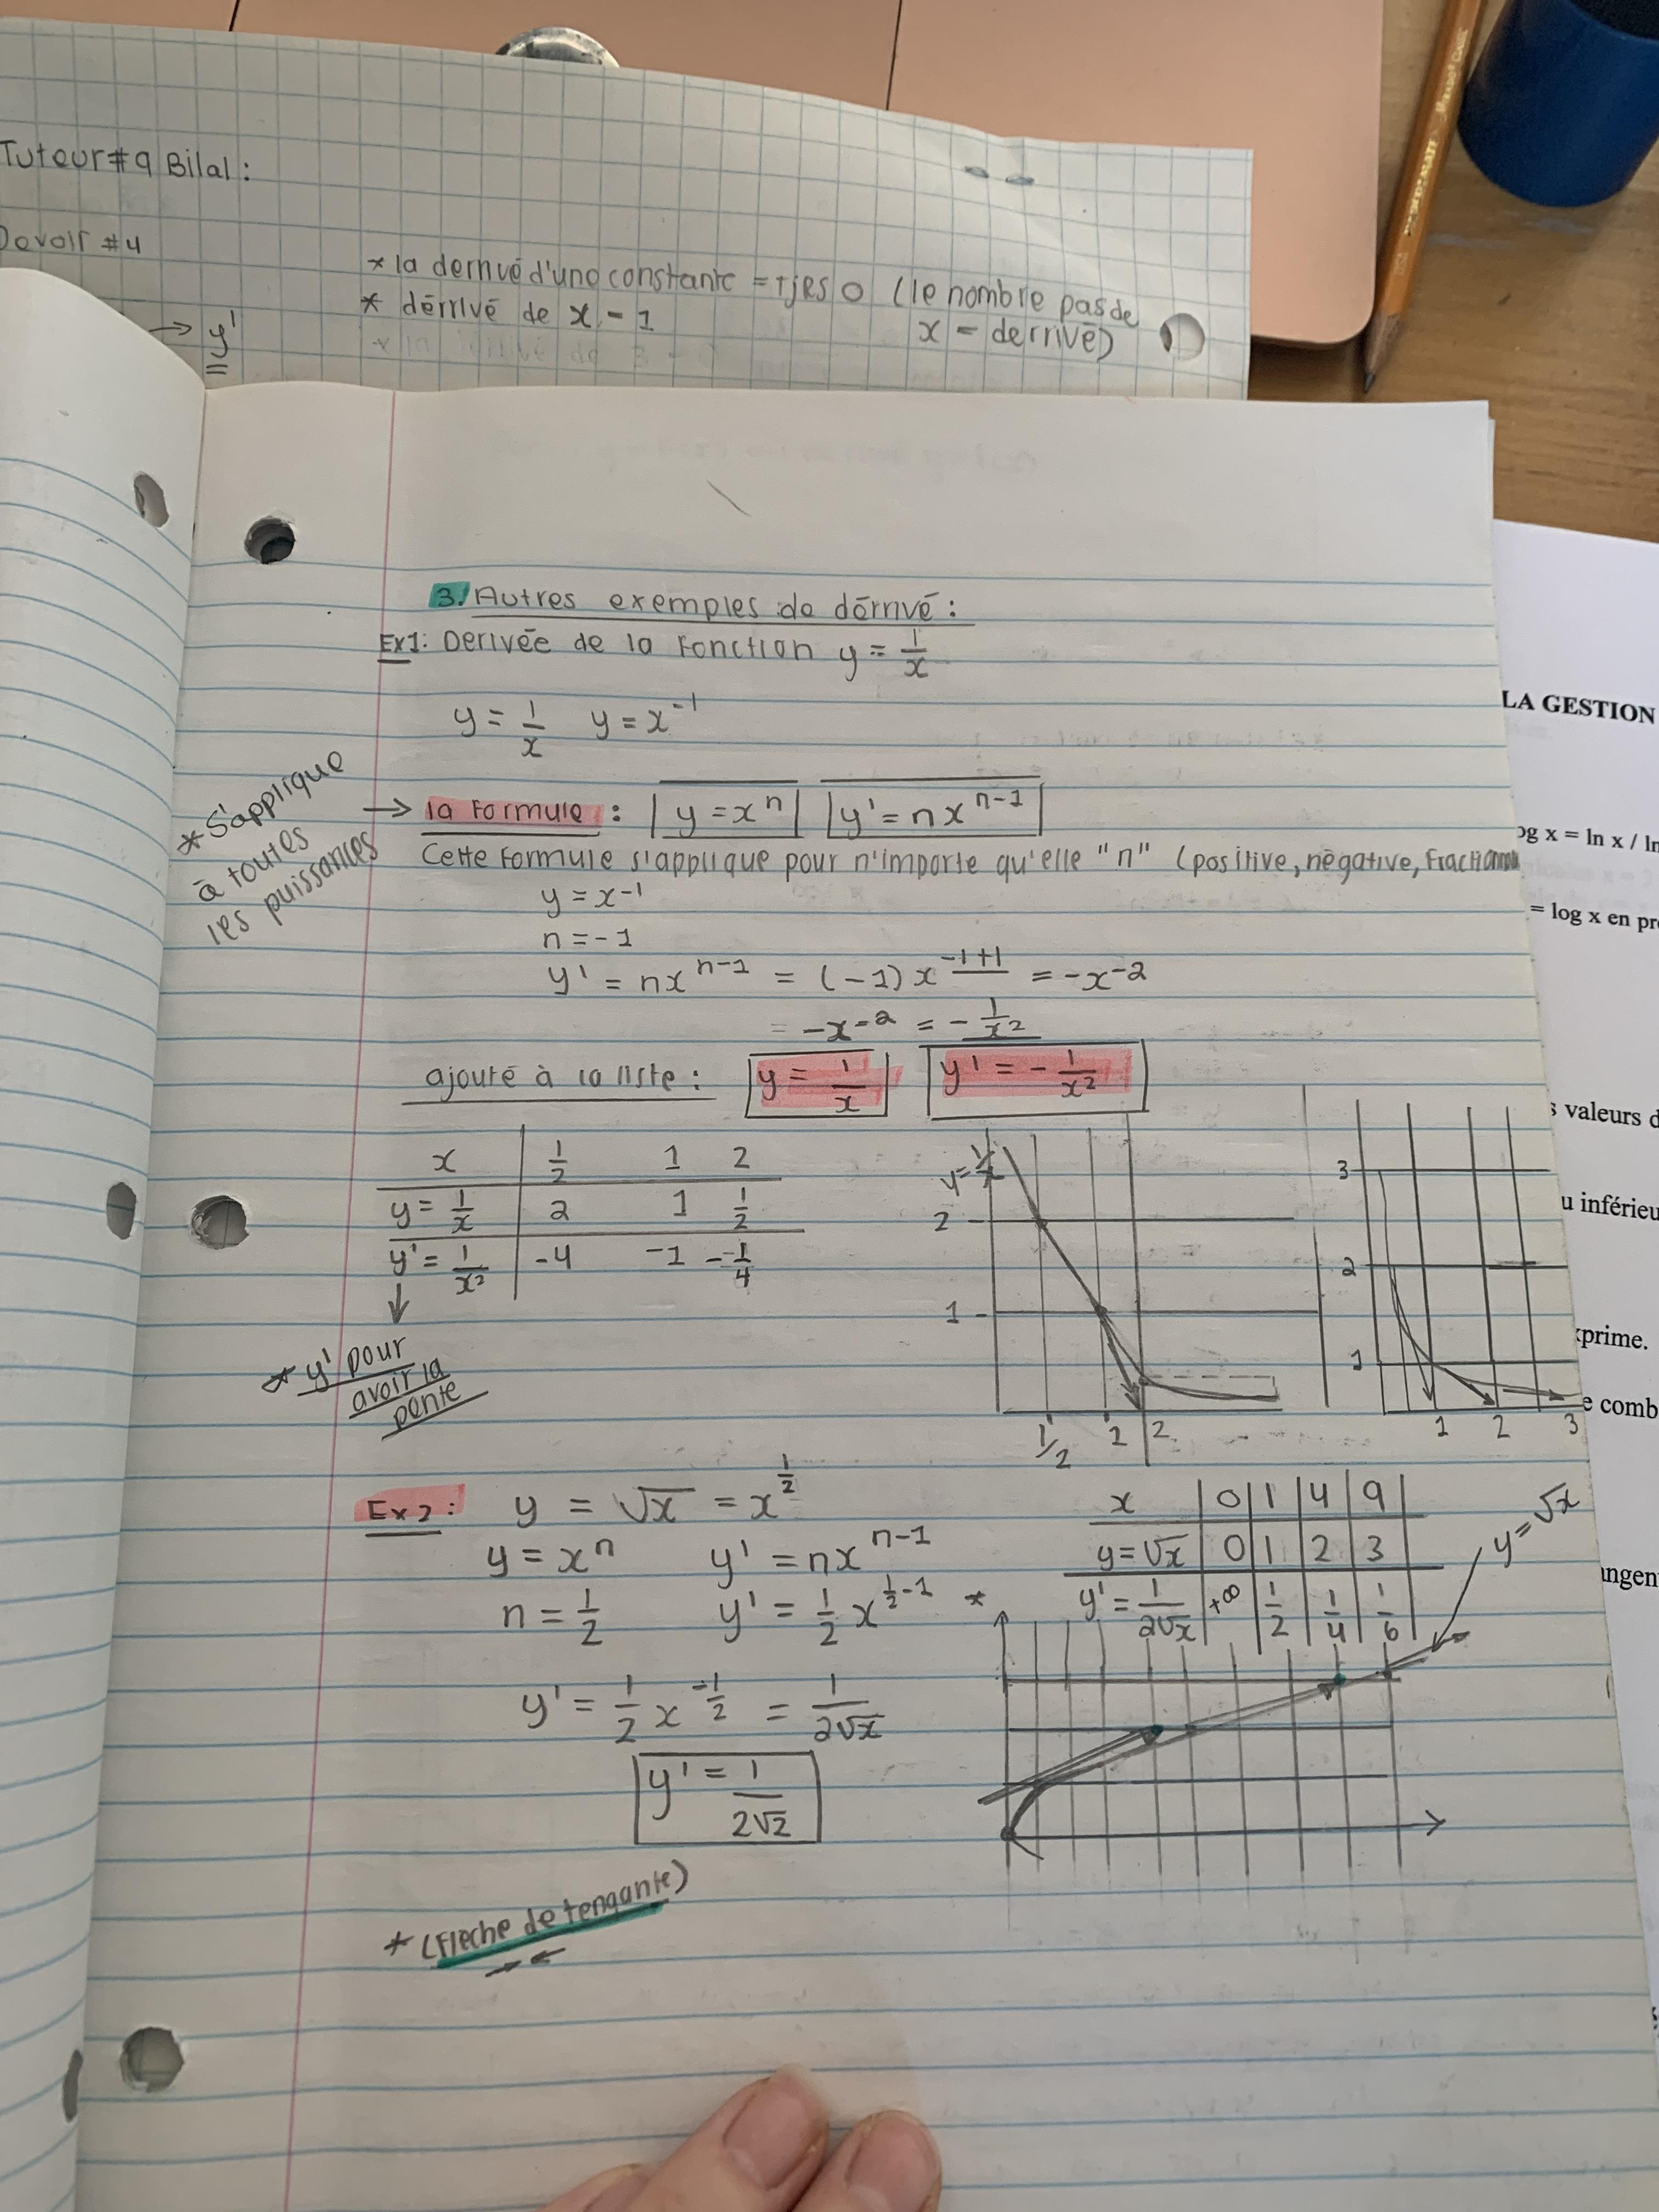 Tuteur #9 Bilal:
Devoir #4
→ y'
* la derrivé d'une constante = tjes 0 (le nombre pas de
* dérrivé de x = 1
x = derrivé)
3. Autres exemples de dérrivé:
Ex1: Derivée de la fonction y = 1/x
y = 1/x y = x^-1
* s'applique
à toutes
les puissances
→ la formule: y = x^n y' = nx^n-1
Cette formule s'applique pour n'importe qu'elle "n" (positive, négative, fraction
y = x^-1
n = -1
y' = nx^n-1 = (-1) x^-1+1 = -x^-2
= -x^-2 = -1/x²
ajouté à la liste: y = 1/x y' = -1/x²
x 1/2 1 2
y = 1/x 2 1 1/2
y' = 1/x² -4 -1 -1/4
* y' pour
avoir la
pente
y = 1/x
2
1
1/2 1 2
3
2
1
1 2 3
Ex 2: y = √x = x^1/2
y = x^n y' = nx^n-1
n = 1/2 y' = 1/2 x^1/2-1 *
y' = 1/2 x^-1/2 = 1/2√x
y' = 1/2√x
x 0 1 4 9
y = √x 0 1 2 3
y' = 1/2√x +∞ 1/2 1/4 1/6
y = √x
* (Flèche de tengante)
LA GESTION
og x = ln x / ln
= log x en pr
s valeurs d
u inférieu
xprime.
e comb
angen